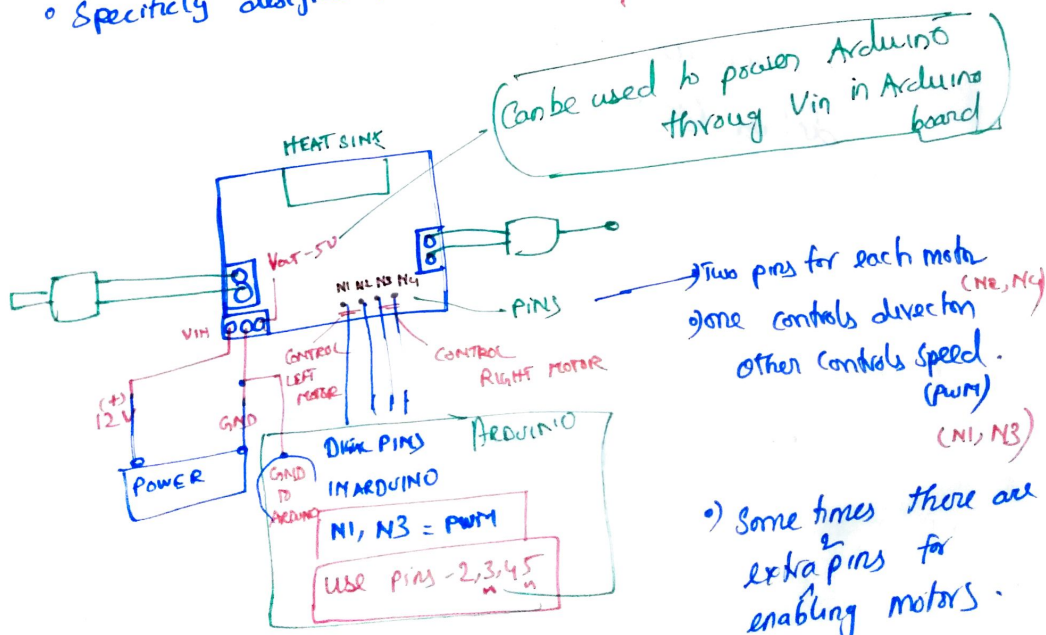 • Specificly
Can be used to power Arduino
throug Vin in Arduino
board
HEAT SINK
Vout-5V
N1 N2 N3 N4
PINS
VIN
CONTROL
LEFT
MOTOR
CONTROL
RIGHT MOTOR
(+)
12V
GND
POWER
GND
TO
ARDUINO
ARDUINO
PINS
IN ARDUINO
N1, N3 = PWM
Use pins - 2,3,4,5
•) Two pins for each motor
(N2, N4)
•) one controls direction
other controls speed.
(PWM)
(N1, N3)
•) Some times there are
extra 2 pins for
enabling motors.